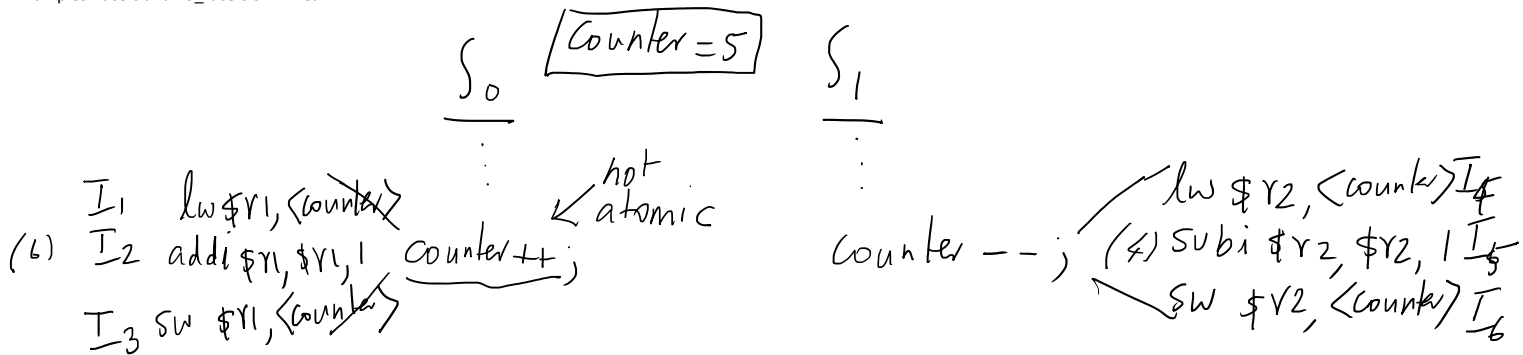 S0 Counter = 5 S1
not atomic
I1 lw $r1, <counter>
(6) I2 addi $r1, $r1, 1 counter++;
I3 sw $r1, <counter>
lw $r2, <counter> I4
counter --; (4) subi $r2, $r2, 1 I5
sw $r2, <counter> I6